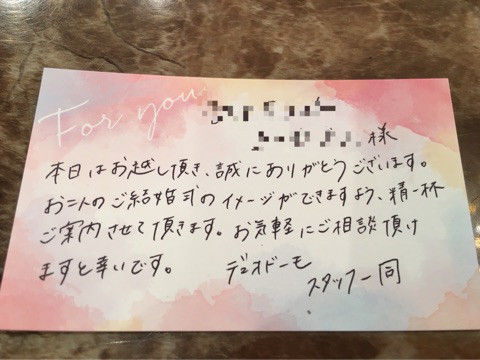 For you
様
本日はお越し頂き、誠にありがとうございます。
お二人のご結婚式のイメージができますよう、精一杯
ご案内させて頂きます。お気軽にご相談頂け
ますと幸いです。
デュオドーモ
スタッフ一同